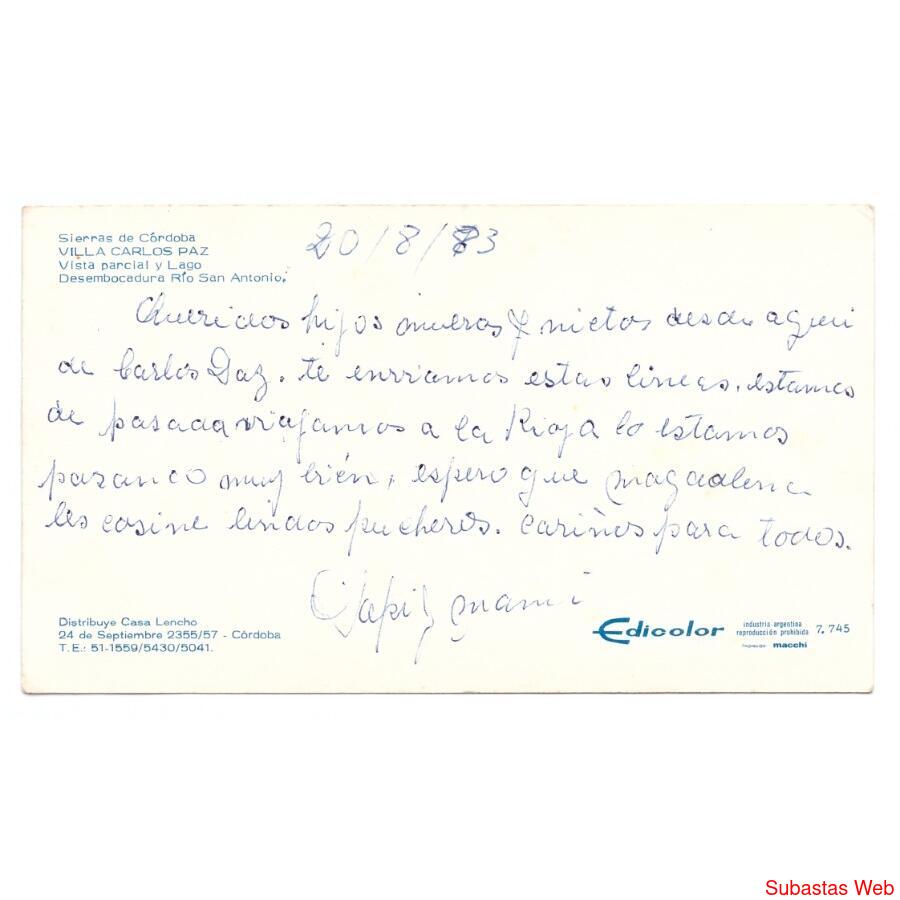 Sierras de Córdoba
VILLA CARLOS PAZ
Vista parcial y Lago
Desembocadura Río San Antonio.
20/8/83
Queridos hijos nueras y nietos desde aquí
de Carlos Paz. te enviamos estas lineas. estamos
de pasada viajamos a la Rioja lo estamos
pasando muy bién, espero que magdalena
les cosine lindos pucheros. cariños para todos.
Papi y mami
Distribuye Casa Lencho
24 de Septiembre 2355/57 - Córdoba
T.E.: 51-1559/5430/5041.
Edicolor
industria argentina
reproducción prohibida
7.745
macchi
Subastas Web